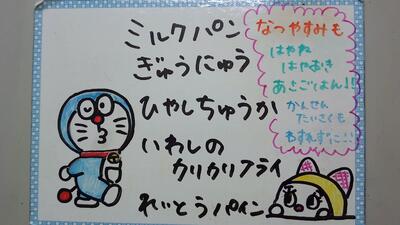 ミルクパン
ぎゅうにゅう
ひやしちゅうか
いわしの
カリカリフライ
れいとうパイン
なつやすみも
はやね
はやおき
あさごはん!!
かんせん
たいさくも
わすれずに!!